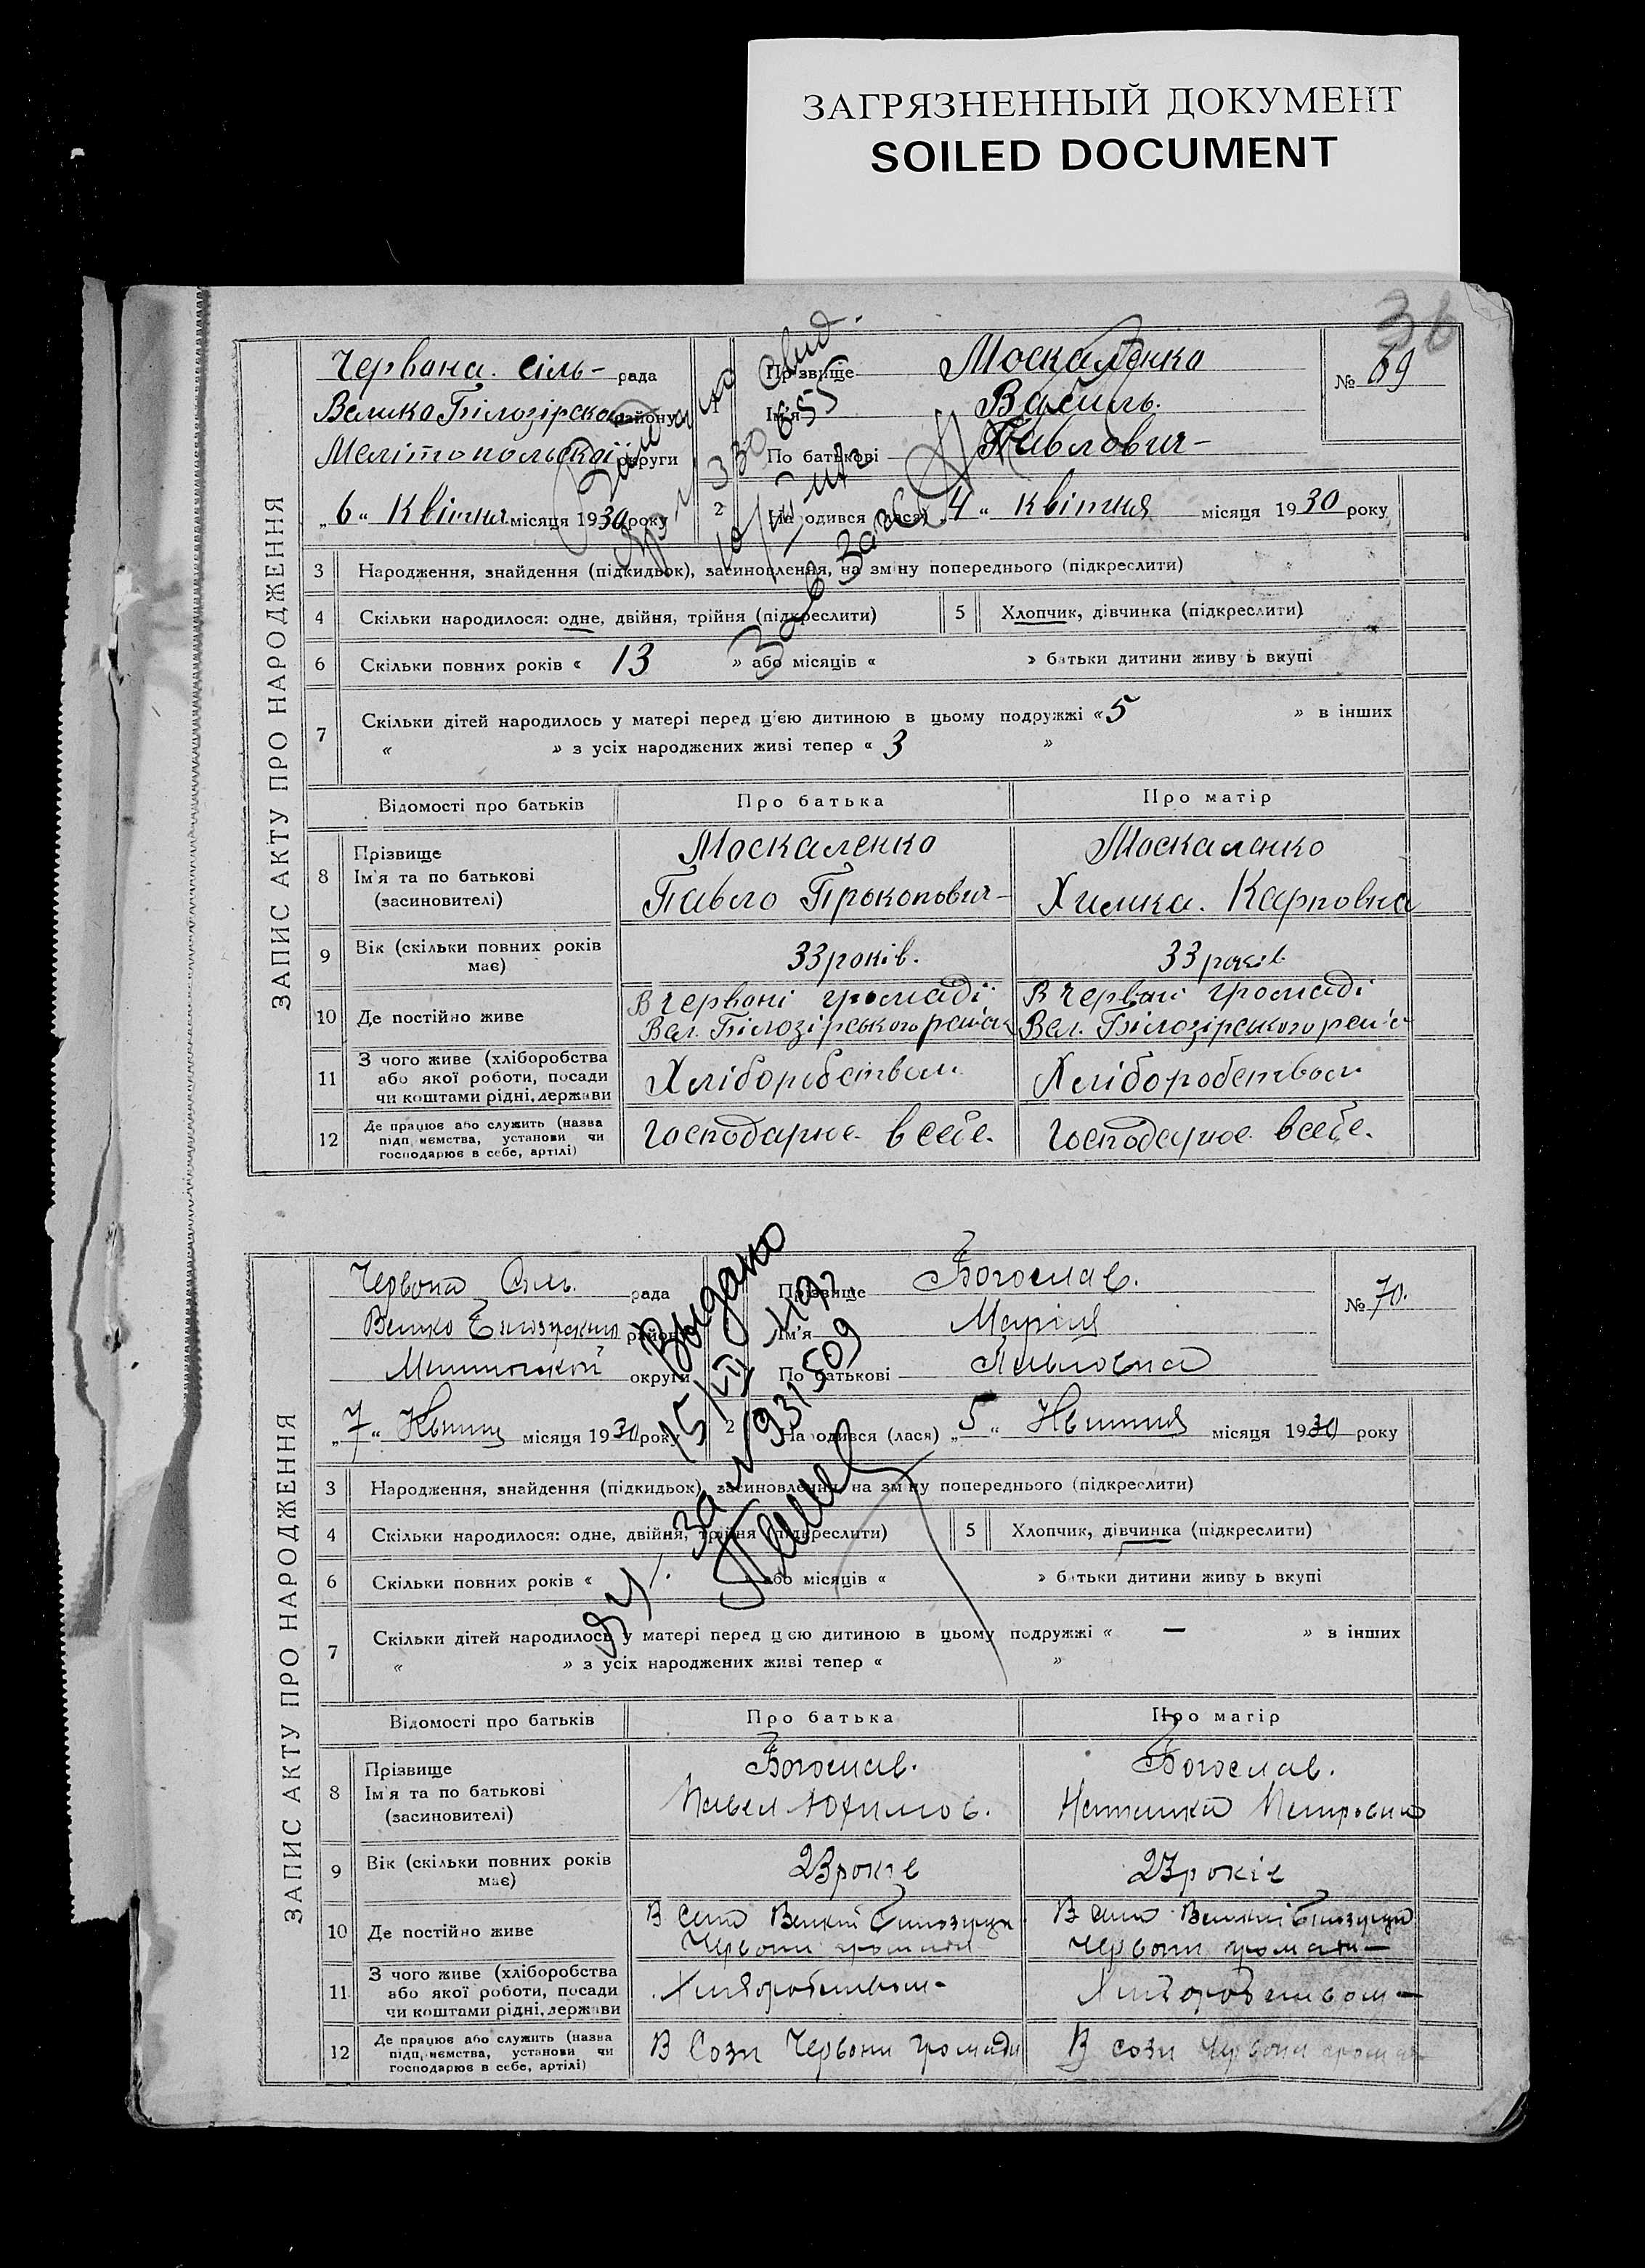 ЗАГРЯЗНЕННЫЙ ДОКУМЕНТ
SOILED DOCUMENT
36
ЗАПИС АКТУ ПРО НАРОДЖЕННЯ
Червона. сіль- рада
Велико Білозірского району
Мелітопольскаї округи
„6" Квітня місяця 1930 року
1 Прізвище Москаленко
Ім'я Василь.
По батькові Павлович-
№ 69
2 Народився (лася) „4" квітня місяця 1930 року
3 Народження, знайдення (підкидьок), засиновлення, на зміну попереднього (підкреслити)
4 Скільки народилося: одне, двійня, трійня (підкреслити)
5 Хлопчик, дівчинка (підкреслити)
6 Скільки повних років « 13 » або місяців « » батьки дитини живуть вкупі
7 Скільки дітей народилось у матері перед цією дитиною в цьому подружжі « 5 » в інших
« » з усіх народжених живі тепер « 3 »
Відомості про батьків Про батька Про матір
8 Прізвище Москаленко Москаленко
Ім'я та по батькові Павло Прокопович- Химка. Карповна
(засиновителі)
9 Вік (скільки повних років має) 33 років. 33 років
10 Де постійно живе В червоні громаді В червоні громаді
Вел. Білозірського Вел. Білозірського
11 З чого живе (хліборобства або якої роботи, посади чи коштами рідні, держави Хліборобством Хліборобством
12 Де працює або служить (назва підприємства, установи чи господарює в себе, артілі) Господарює в себе. Господарює в себе.
330655
ЗАПИС АКТУ ПРО НАРОДЖЕННЯ
Червона Сіль. рада
Велико району
округи
„7" місяця 1930 року
Прізвище Богослав.
Ім'я Марія
По батькові Павловна
№ 70.
2 Народився (лася) „5" Квітня місяця 1930 року
Выдано
15/VII
931509
3 Народження, знайдення (підкидьок), засиновлення, на зміну попереднього (підкреслити)
4 Скільки народилося: одне, двійня, трійня (підкреслити)
5 Хлопчик, дівчинка (підкреслити)
6 Скільки повних років « » або місяців « » батьки дитини живуть вкупі
7 Скільки дітей народилось у матері перед цією дитиною в цьому подружжі « — » в інших
« » з усіх народжених живі тепер « »
Відомості про батьків Про батька Про матір
8 Прізвище Богослав. Богослав.
Ім'я та по батькові Павел Юхимов. Наталка Петровна
(засиновителі)
9 Вік (скільки повних років має) 23 років 23 років
10 Де постійно живе В селі Великій Білозірци В селі Великій Білозірци
Червони громади Червони громади-
11 З чого живе (хліборобства або якої роботи, посади чи коштами рідні, держави Хліборобством- Хліборобством-
12 Де працює або служить (назва підприємства, установи чи господарює в себе, артілі) В Сози Червони громади В Сози Червони